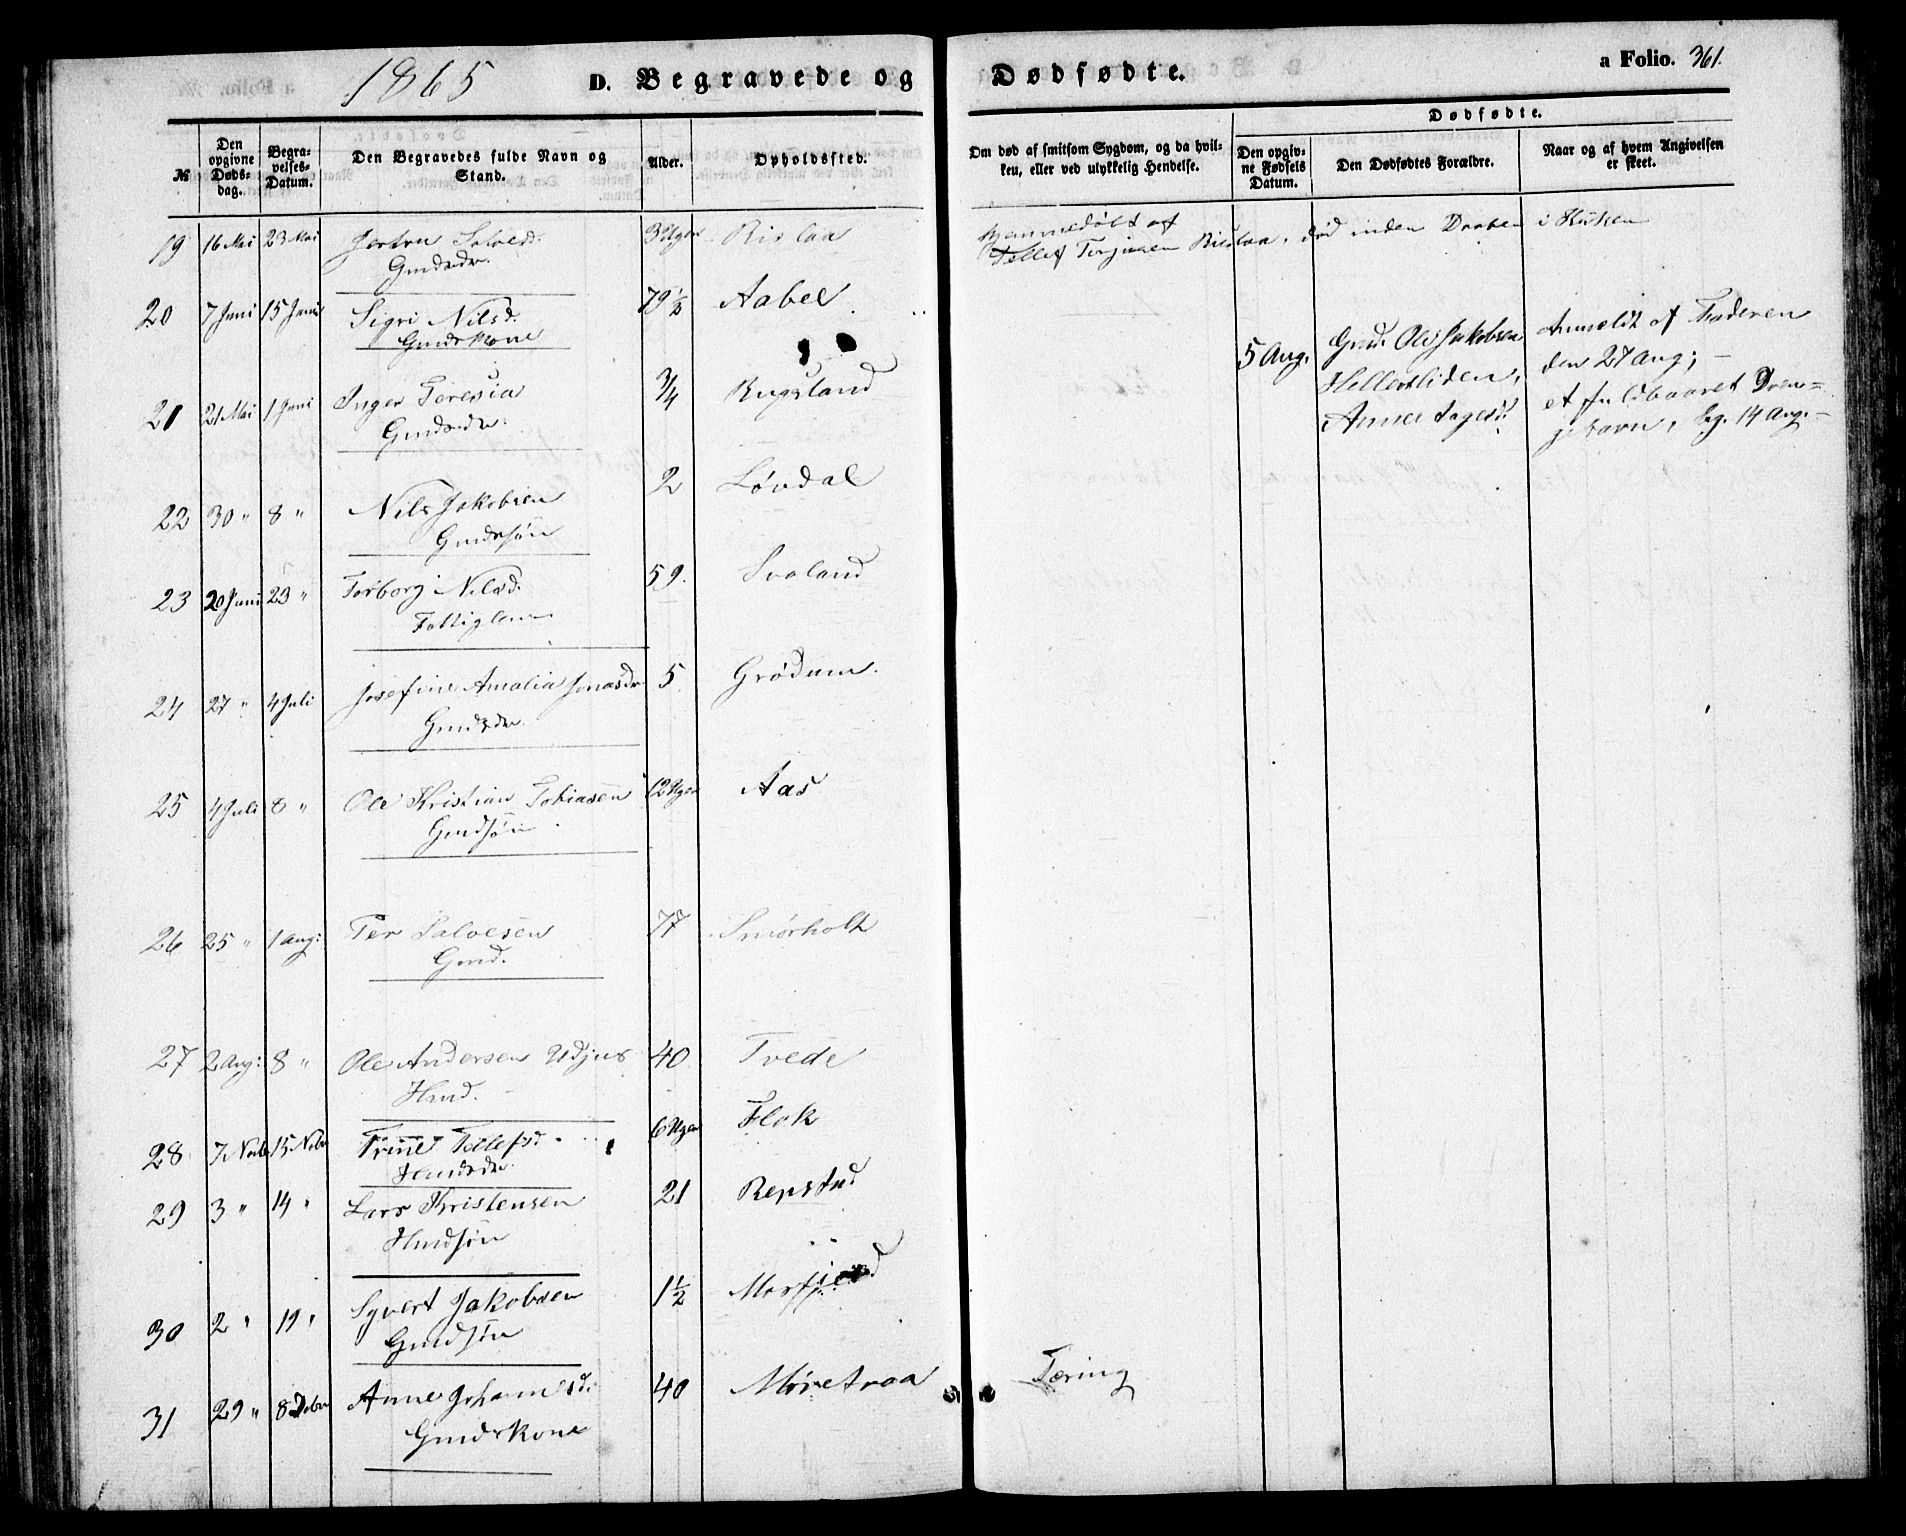 1865 D. Begravede og Dødfødte. a Folio. 361.
Dødfødte.
№ Den opgivne Dødsdag. Begravelses-Datum. Den Begravedes fulde Navn og Stand. Alder. Opholdssted. Om død af smitsom Sygdom, og da hvilken, eller ved ulykkelig Hendelse. Den opgivne Fødsels Datum. Den Dødfødtes Forældre. Naar og af hvem Angivelsen er skeet.
19 16 Mai 23 Mai Salvesd. 3 Uger Rislaa Hjemmedøbt af
Gmdsdr. Tellef Terjusen Rislaa, død inden Daaben i Kirken
20 7 Juni 15 Juni Sigri Nilsd. 79 ½ Aabel
Gmdskone
5 Aug. Gmd. Ole Jakobsen Anmeldt af Faderen
Hellestliden, den 27 Aug; –
Anne Aagesd. et fuldbaaret Dren=
gebarn, beg. 14 Aug. –
21 21 Mai 1 Juni Inger Teresia ¾ Rugsland
Gmdsdr.
22 30 " 8 " Nils Jakobsen 2 Løvdal
Gmdssøn
23 20 Juni 23 " Torborg Nilsd. 59. Svaland
Fattiglem
24 27 " 4 Juli Josefine Amalia Jonasdr 5 Grødum.
Gmdsdr.
25 4 Juli 8 " Ole Kristian Tobiasen 12 Uger Aas
Gmdsøn
26 25 " 1 Aug: Per Salvesen 77 Smørholt
Gmd.
27 2 Aug: 8 " Ole Andersen Udjus 40 Tvede
Hmd.
28 7 Novb 15 Nvbr Trine Tellefsd. 6 Uger Flak
Hmdsdr.
29 3 " 14 " Lars Kristensen 21 Repstad
Hmdsøn
30 2 " 19 " Syvert Jakobsen 1½
Gmdsøn
31 29 " 8 Debr Anne Johannesd. 40 Møretraa Tæring
Gmdskone